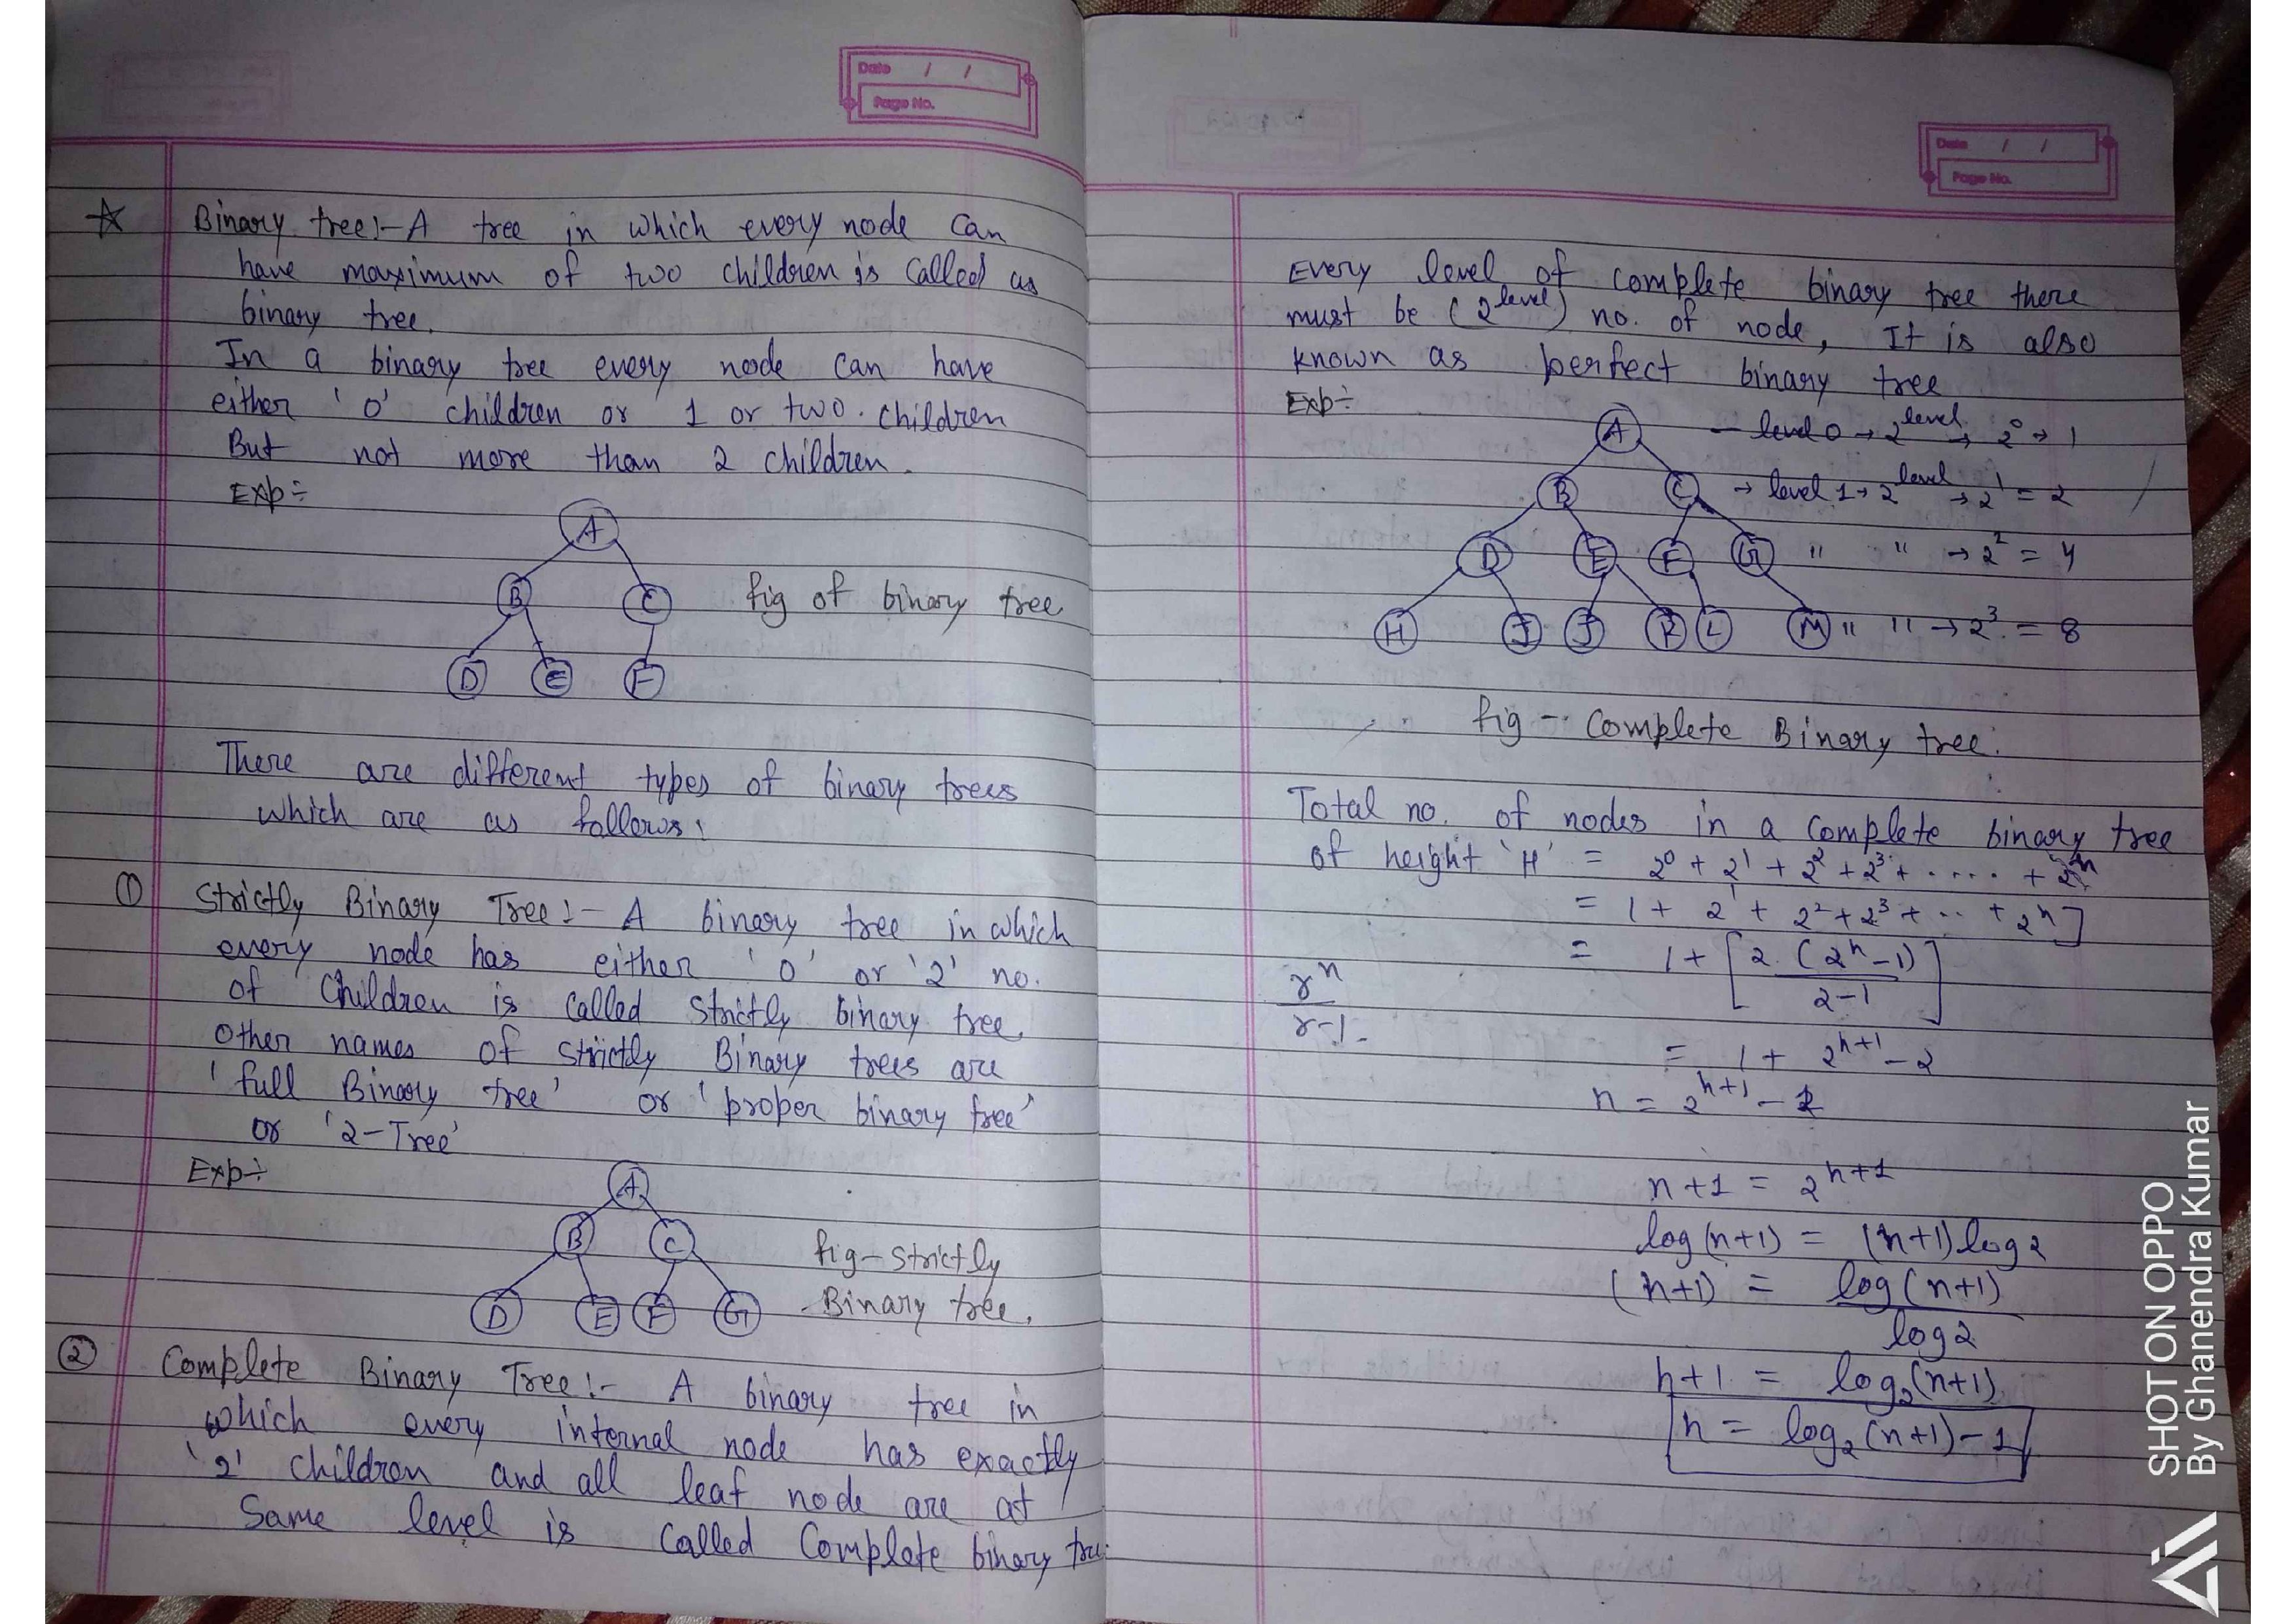 Date / /
Page No.
☆ Binary tree:- A tree in which every node can
have maximum of two children is called as
binary tree.
In a binary tree every node can have
either '0' children or 1 or two children
But not more than 2 children.
Exp÷
A
B C fig of binary tree
D E F
There are different types of binary trees
which are as follows:
① Strictly Binary Tree:- A binary tree in which
every node has either '0' or '2' no.
of children is called strictly binary tree.
Other names of strictly Binary trees are
'full Binary tree' or 'proper binary tree'
or '2-Tree'
Exp÷
A
B C fig-strictly
D E F G Binary tree.
② Complete Binary Tree:- A binary tree in
which every internal node has exactly
'2' children and all leaf node are at
Same level is called Complete binary tree.
Date / /
Page No.
Every level of complete binary tree there
must be (2^level) no. of node, It is also
known as perfect binary tree
Exp÷
A - level 0 → 2^level → 2^0 → 1
B C → level 1 → 2^level → 2^1 = 2
D E F G " " → 2^2 = 4
H I J K L M " " → 2^3 = 8
fig - Complete Binary tree.
Total no. of nodes in a complete binary tree
of height 'H' = 2^0 + 2^1 + 2^2 + 2^3 + ..... + 2^h
= 1 + 2^1 + 2^2 + 2^3 + .. + 2^h]
= 1 + [2.(2^h-1) / 2-1]
r^n / r-1.
= 1 + 2^h+1 - 2
n = 2^h+1 - 1
n+1 = 2^h+1
log(n+1) = (h+1) log 2
(h+1) = log(n+1) / log 2
h+1 = log₂(n+1)
h = log₂(n+1)-1
SHOT ON OPPO
By Ghanendra Kumar